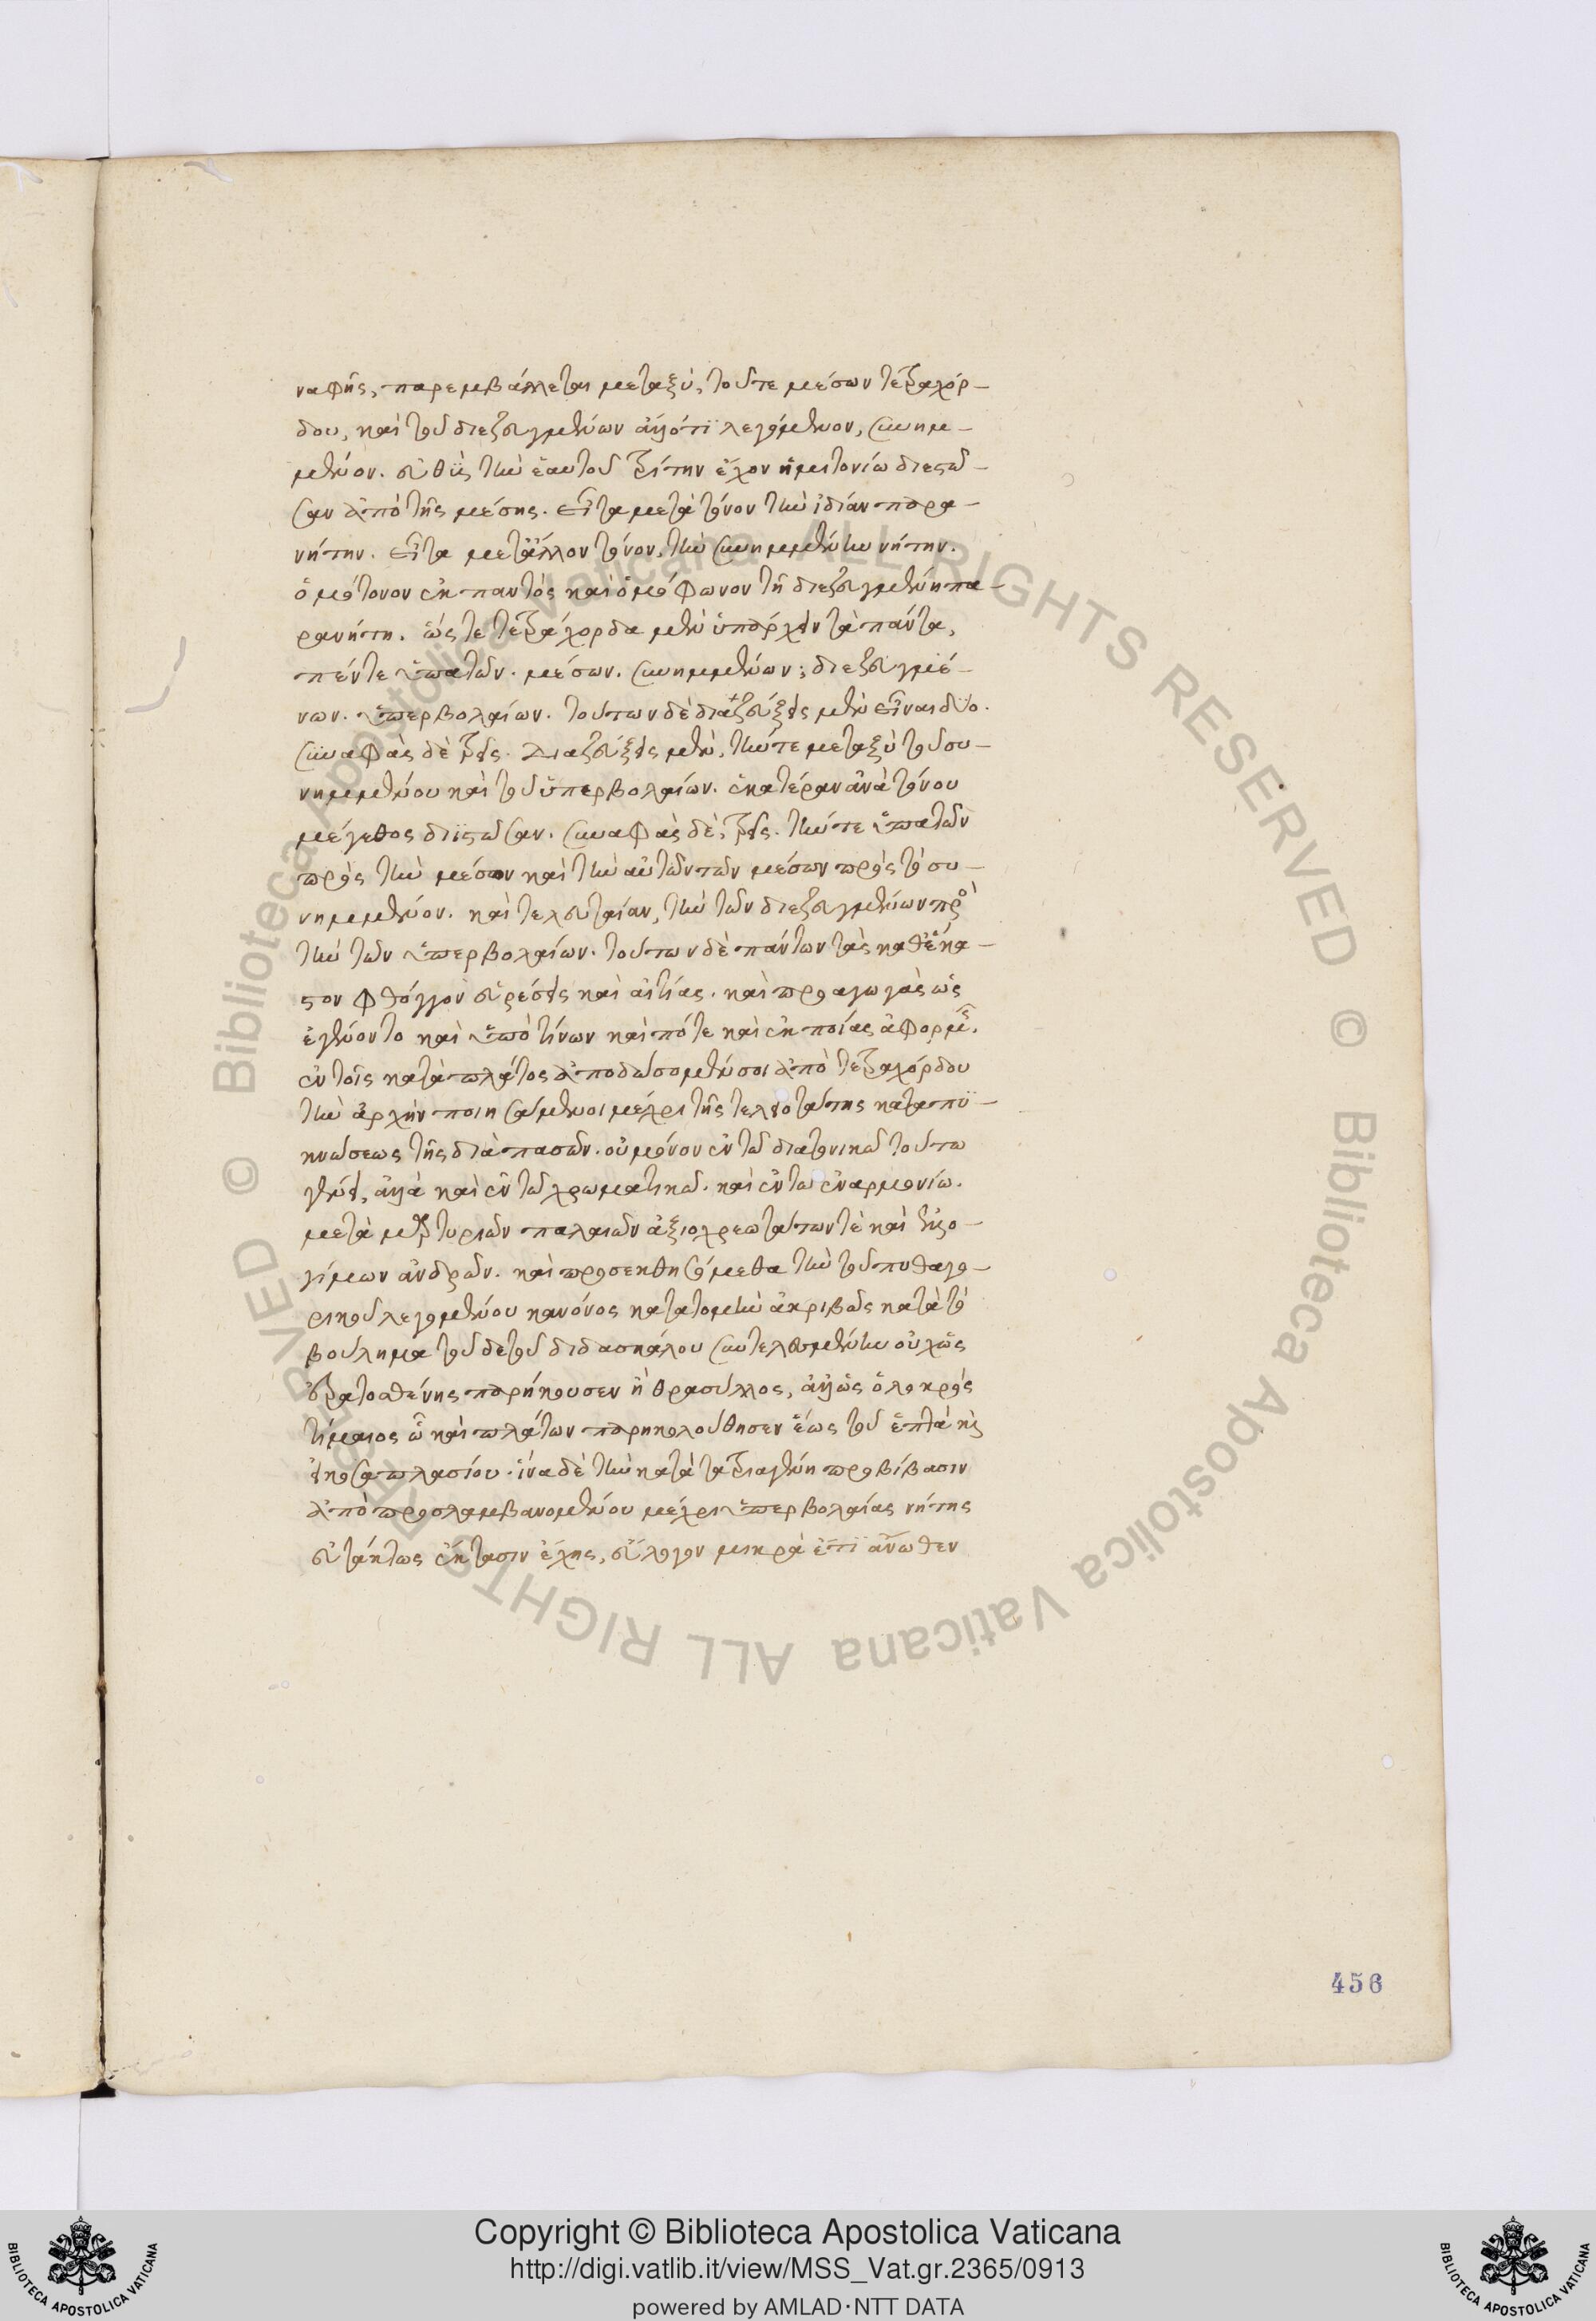 ναφῆς, παρεμβάλλεται μεταξὺ, τοῦτε μέσων τετραχόρ-
δου, καὶ τοῦ διεζευγμένων ἄλλότι λεγόμενον, συνημ-
μένον. εὐθὺς τὴν ἑαυτοῦ τρίτην ἔχον ἡμιτονίω διεστῶ-
σαν ἀπὸ τῆς μέσης. εἶτα μετὰ τόνον τὴν ἰδίαν παρα-
νήτην. εἶτα μετάλλον τόνον, τὴν συνημμένην νήτην.
ὁμότονον ἐκ παντὸς καὶ ὁμόφωνον τῆ διεζευγμένη πα-
ρανήτη. ὥςτε τετράχορδα μὲν ὑπάρχειν τὰ πάντα,
πέντε ὑπατῶν. μέσων. συνημμένων· διεζευγμέ-
νων. ὑπερβολαίων. τούτων δὲ διαζεύξεις μὲν εἶναι δύο.
συναφὰς δὲ τρεῖς. Διαζεύξεις μὲν, τήντε μεταξὺ τοῦ συ-
νημμένου καὶ τοῦ ὑπερβολαίων. ἑκατέραν ἀνὰ τόνου
μέγεθος διϊστῶσαν. συναφὰς δὲ, τρεῖς. τήντε ὑπατῶν
πρὸς τὴν μέσων καὶ τὴν αὐτῶντῶν μέσων πρὸς τὸ συ-
νημμένον. καὶ τελευταίαν, τὴν τῶν διεζευγμένων πρὸς
τὴν τῶν ὑπερβολαίων. τούτων δὲ πάντων τὰς καθέκα-
στον φθόγγον εὑρέσεις καὶ αἰτίας. καὶ προαγωγὰς ὡς
ἐγένοντο καὶ ὑπὸ τίνων καὶ πότε καὶ ἐκ ποίας ἀφορμῆς.
ἐν τοῖς κατὰ πλάτος ἀποδώσομέν σοι ἀπὸ τετραχόρδου
τὴν ἀρχὴν ποιησάμενοι μέχρι τῆς τελειοτάτης καταπυ-
κνώσεως τῆς διὰ πασῶν. οὐ μόνον ἐν τῶ διατονικῶ τούτω
γένει, ἀλλὰ καὶ ἐν τῶ χρωματικῶ. καὶ ἐν τω ἐναρμονίω.
μετὰ μαρτυριῶν παλαιῶν ἀξιοχρεωτάτων τὲ καὶ ἐλλο-
γίμων ἀνδρῶν. καὶ προσεκθησόμεθα τὴν τοῦ πυθαγο-
ρικοῦ λεγομένου κανόνος κατατομὴν ἀκριβῶς κατὰ τὸ
βούλημα τοῦδε τοῦ διδασκάλου συντελουμένην οὐχῶς
ἐρατοσθένης παρήκουσεν ἢ θρασύλλος, ἀλλὼς ὁ λοκρὸς
τίμαιος ὧ καὶ πλάτων παρηκολούθησεν ἕως τοῦ ἑπτὰ κὶς
εἰκοσαπλασίου. ἵνα δὲ τὴν κατὰ τὰ τρία γένη προβίβασιν
ἀπὸ προσλαμβανομένου μέχρι ὑπερβολαίας νήτης
εὐτάκτως ἔκτασιν ἔχης, εὔλογον μικρὰ ἐπὶ ἄνωθεν
456
Copyright © Biblioteca Apostolica Vaticana
http://digi.vatlib.it/view/MSS_Vat.gr.2365/0913
powered by AMLAD·NTT DATA